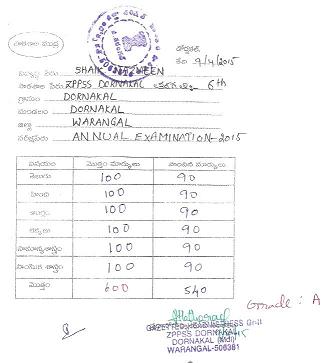 పాఠశాల ముద్ర
డోర్నకల్
తేది 9/4/2015
విద్యార్థి పేరు SHAIK NAZMEEN
పాఠశాల పేరు ZPPSS DORNAKAL తరగతి 6th
గ్రామం DORNAKAL
మండలం DORNAKAL
జిల్లా WARANGAL
పరీక్షపేరు ANNUAL EXAMINATION-2015
విషయం మొత్తం మార్కులు పొందిన మార్కులు
తెలుగు 100 90
హింది 100 90
ఆంగ్లం 100 90
లెక్కలు 100 90
సామాన్యశాస్త్రం 100 90
సాంఘికశాస్త్రం 100 90
మొత్తం 600 540
Grade: A
GAZETTED HEADMISTRESS Gr-II
ZPPSS DORNAKAL
DORNAKAL (Mdl)
WARANGAL-506381